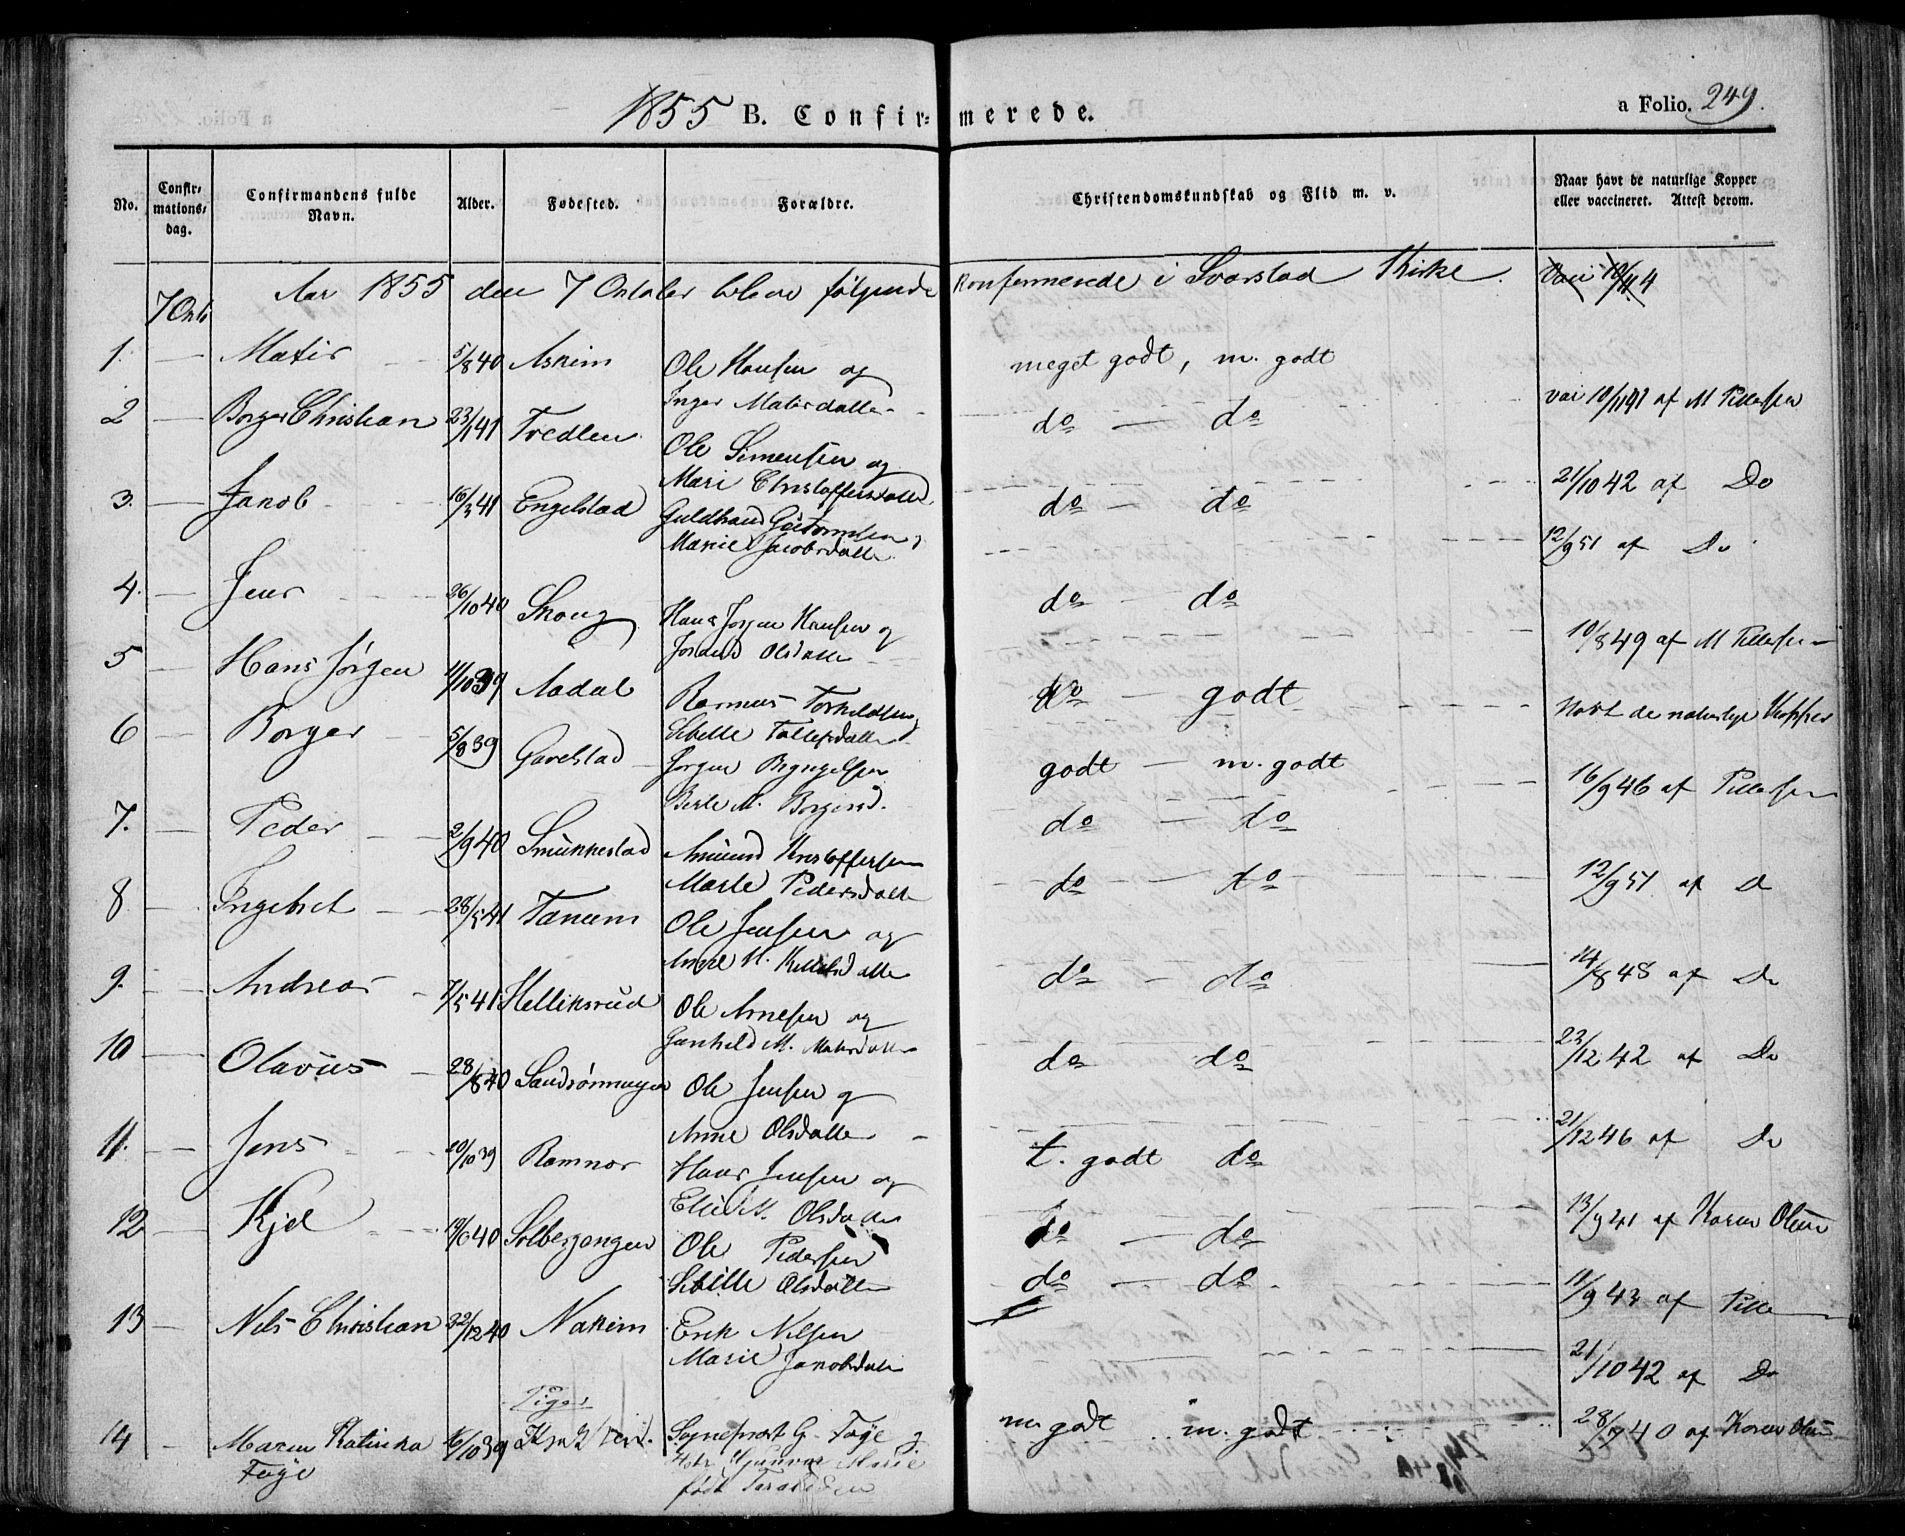 1855 B. Confirmerede.
a Folio. 249.
No.
Confirmationsdag.
Confirmandens fulde Navn.
Alder.
Fødested.
Forældre.
Christendomskundskab og Flid m. v.
Naar havt de naturlige Kopper eller vaccineret. Attest derom.
Aar 1855 den 7 October bleve følgende konfermerede i Svarstad Kirke.
7 Octb
1. — Matis 5/8 40 Askim Ole Hansen og
Inger Matisdatter meget godt, m. godt
vac 10/11 41 af M Tillefsen
2 — Borger Christian 23/1 41 Tvedten Ole Simensen og
Mari Christoffersdatter do — do
21/10 42 af Do
3. — Jakob 16/3 41 Engelstad Guldbrand Guttormsen
Marie Jacobsdatter do — do
12/9 51 af Do
4. — Jens 26/10 40 Skoug Hans Jørgen Hansen og
Olsdatter do — do
10/8 49 af M Tillefsen
5 — Hans Jørgen 11/10 39 Aadal Rasmus Torkildsen
Sibille Tollefsdatter do — godt
havt de naturlige Kopper
6 — Borger 5/8 39 Gavelstad Jørgen
Berte M. Borgersd. godt — m. godt
16/9 46 af Tillefsen
7. — Peder 2/9 40 Smukkestad Amund Kristoffersen
Marte Pedersdatter do — do
12/9 51 af D
8 — Ingebret 28/5 41 Tanum Ole Jensen og
Anne M. Kittilsdatter do — do
14/8 48 af Do
9. — Andreas 7/5 41 Helliksrud Ole Arnesen og
Gunhild M. Matisdatter do — do
23/12 42 af Do
10 — Olavus 28/8 40 Sandsønningen Ole Jensen og
Anne Olsdatter do do
21/12 46 af Do
11. — Jens 20/10 39 Ramnos Hans Jensen og
M. Olsdatter t. godt do
13/9 41 af Karen Olsen
12 — Kjel 19/6 40 Solbergangen Ole Pedersen
Sibille Olsdatter do — do
11/9 43 af Tille
13 — Nils Christian 22/12 40 Nakim Erik Nilsen
Marie Jakobsdatter do — do
21/10 42 af Do
Piger
14 — Maren Katinka
Føye 16/10 39 Sogneprest G. Føye og
Marie
født m. godt m. godt
28/7 40 af Karen Olsen